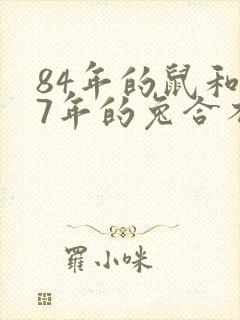 84年的鼠和
7年的兔合
羅小咪